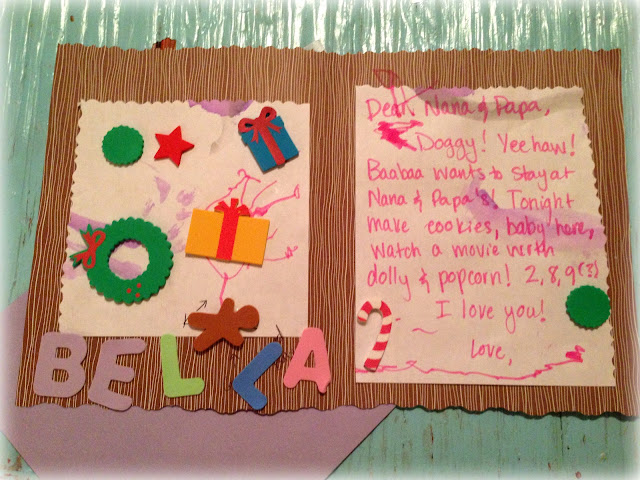 BELLA
Dear Nana & Papa,
Doggy! Yeehaw!
Baabaa wants to stay at
Nana & Papa's! Tonight
make cookies, baby here,
watch a movie with
dolly & popcorn! 2,8,9(?)
I love you!
Love,